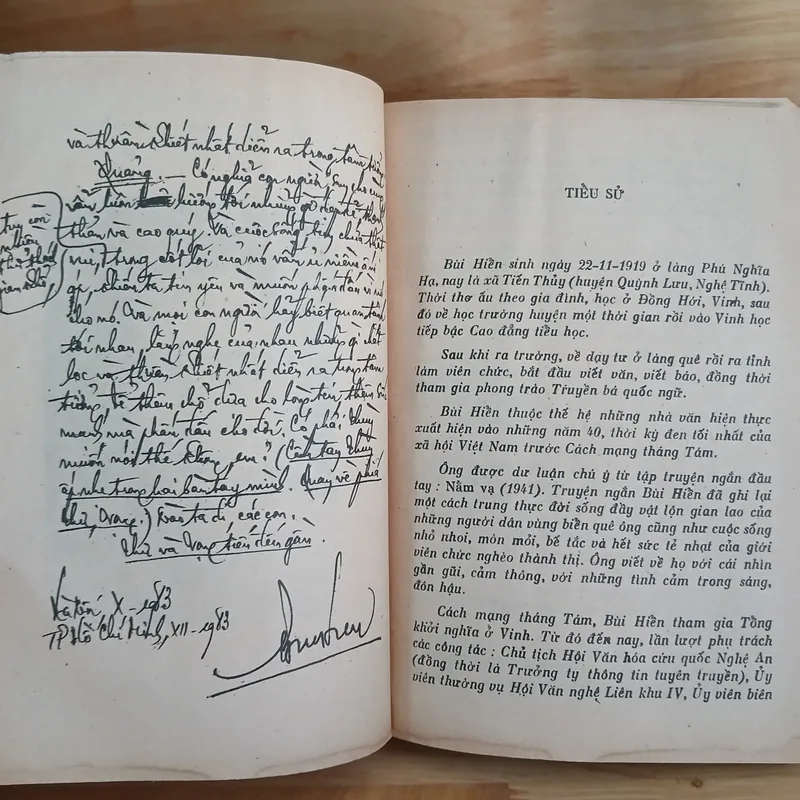 và thuần khiết nhất diễn ra trong tâm tưởng
Quảng. — Có nghĩa con người, suy cho cùng
vẫn luôn hướng tới những gì đẹp đẽ, thơm
thảo và cao quý. Và cuộc sống, tuy chưa thật
tuy còn
nhiều
thử thách
gian khổ,
vui, trong cốt lõi của nó vẫn ủ niềm ấm
áp, khiến ta tin yêu và muốn phấn đấu vì nó
cho nó. Và mọi con người hãy biết quan tâm
tới nhau, lắng nghe của nhau những gì chắt
lọc và thuần khiết nhất diễn ra trong tâm
tưởng, để thêm chỗ dựa cho lòng tin thêm sức
mạnh mà phấn đấu cho đời. Có phải Thùy
muốn nói thế không, em? (Cầm tay Thùy
áp nhẹ trong hai bàn tay mình. Quay về phía
Thư, Vọng.) Nào ta đi, các con.
Thư và Vọng tiến đến gần.
X-1983
TP Hồ Chí Minh, XII-1983
TIỀU SỬ
Bùi Hiền sinh ngày 22-11-1919 ở làng Phú Nghĩa
Hạ, nay là xã Tiến Thủy (huyện Quỳnh Lưu, Nghệ Tĩnh).
Thời thơ ấu theo gia đình, học ở Đồng Hới, Vinh, sau
đó về học trường huyện một thời gian rồi vào Vinh học
tiếp bậc Cao đẳng tiểu học.
Sau khi ra trường, về dạy tư ở làng quê rồi ra tỉnh
làm viên chức, bắt đầu viết văn, viết báo, đồng thời
tham gia phong trào Truyền bá quốc ngữ.
Bùi Hiền thuộc thế hệ những nhà văn hiện thực
xuất hiện vào những năm 40, thời kỳ đen tối nhất của
xã hội Việt Nam trước Cách mạng tháng Tám.
Ông được dư luận chú ý từ tập truyện ngắn đầu
tay : Nằm vạ (1941). Truyện ngắn Bùi Hiền đã ghi lại
một cách trung thực đời sống đầy vật lộn gian lao của
những người dân vùng biển quê ông cũng như cuộc sống
nhỏ nhoi, mòn mỏi, bế tắc và hết sức tẻ nhạt của giới
viên chức nghèo thành thị. Ông viết về họ với cái nhìn
gần gũi, cảm thông, với những tình cảm trong sáng,
đôn hậu.
Cách mạng tháng Tám, Bùi Hiền tham gia Tổng
khởi nghĩa ở Vinh. Từ đó đến nay, lần lượt phụ trách
các công tác : Chủ tịch Hội Văn hóa cứu quốc Nghệ An
(đồng thời là Trưởng ty thông tin tuyên truyền), Ủy
viên thường vụ Hội Văn nghệ Liên khu IV, Ủy viên biên